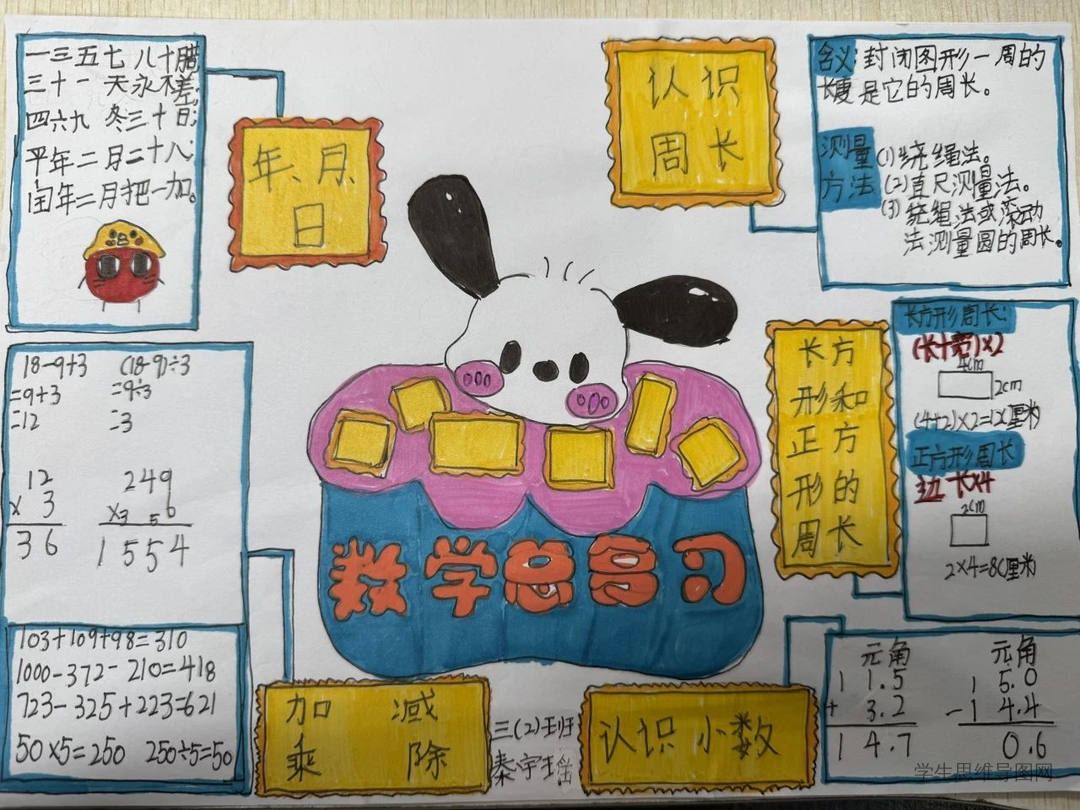 一三五七八十腊
三十一天永不差;
四六九冬三十日;
平年二月二十八;
闰年二月把一加。
年、月、
日
认识
周长
含义:封闭图形一周的
长度是它的周长。
测量
方法
(1)绕绳法。
(2)直尺测量法。
(3)绕绳法或滚动
法测量圆的周长。
18-9+3
=9+3
=12
(18-9)÷3
=9÷3
=3
12
× 3
36
249
×3 5 6
1554
103+109+98=310
1000-372-210=418
723-325+223=621
50×5=250 250÷5=50
加 减
乘 除
数学总复习
长方
形和
正方
形的
周长
长方形周长:
(长+宽)×2
4cm
2cm
(4+2)×2=12厘米
正方形周长
边长×4
2cm
2×4=8厘米
三(2)班
秦宇
认识小数
元角
11.5
+ 3.2
14.7
元角
15.0
-14.4
0.6
学生思维导图网